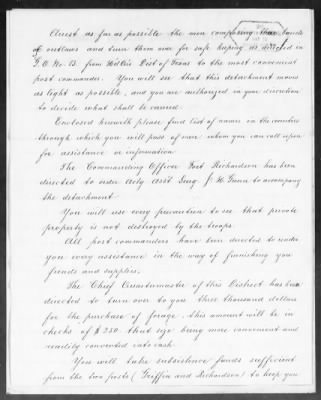 Arrest as far as possible the men composing these bands
of outlaws and turn them over for safe keeping as directed in
G.O. No. 13. from Hdqrs Dist of Texas to the most convenient
post commander. You will see that this detachment moves
as light as possible, and you are authorized in your discretion
to decide what shall be carried.
Enclosed herewith please find list of names in the counties
through which you will pass of men whom you can call upon
for assistance or information
The Commanding Officer Fort Richardson has been
directed to order Actg Asst Surg J. H. Gunn to accompany
the detachment
You will use every precaution to see that private
property is not destroyed by the troops.
All post commanders have been directed to render
you every assistance in the way of furnishing you
friends and supplies.
The Chief Quartermaster of this District has been
directed to turn over to you three thousand dollars
for the purchase of forage, this amount will be in
checks of $250 that size being more convenient and
readily converted into cash
You will take subsistence funds sufficient
from the two posts (Griffin and Richardson) to keep you